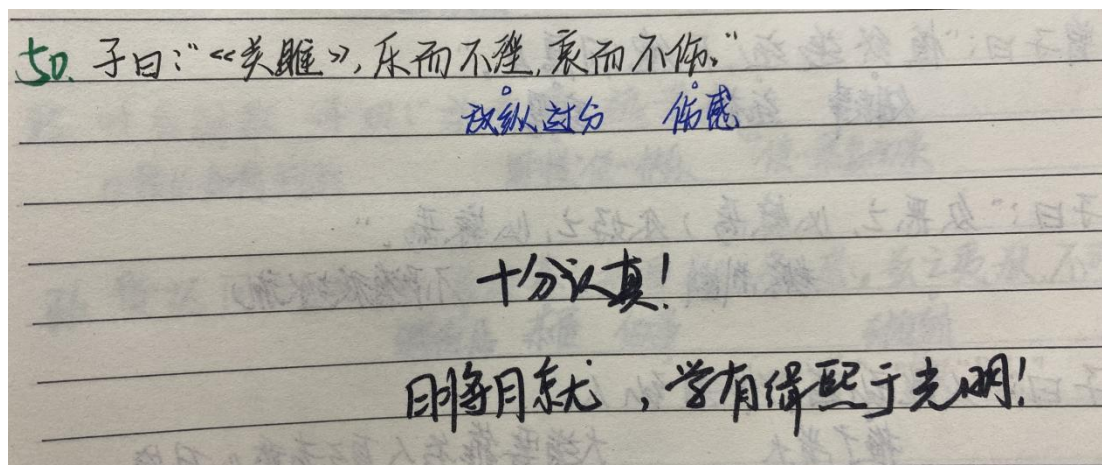 50. 子曰：“《关雎》，乐而不淫，哀而不伤。”
放纵过分 伤感
十分认真！
日将月就，学有缉熙于光明！